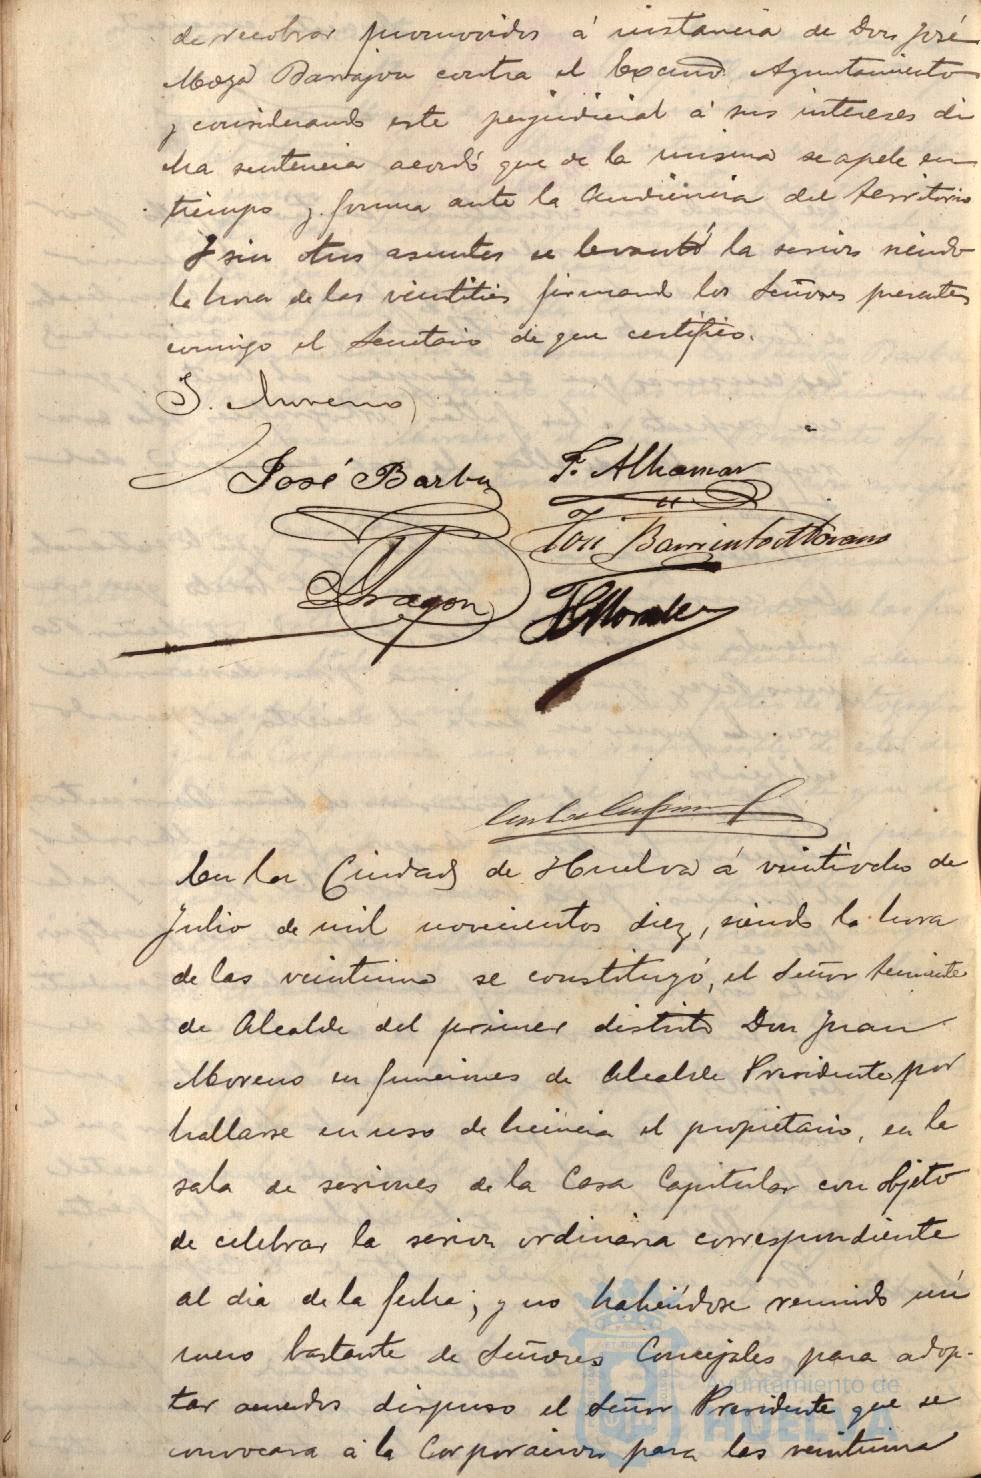 de recobrar promovidos á instancia de Don José
Moya Barrajon contra el Excmo. Ayuntamiento
y considerando este perjudicial á sus intereses di
cha sentencia acordó que de la misma se apele en
tiempo y forma ante la Audiencia del territorio
Y sin otros asuntos se levantó la sesion siendo
la hora de las veintitres firmando los Señores presentes
conmigo el Secretario de que certifico.
J. Moreno
José Barba F. Alhamar
José Barriento Morano
Aragon Morales
En la Ciudad de Huelva á veintiocho de
Julio de mil novecientos diez, siendo la hora
de las veintiuna se constituyó, el Señor teniente
de Alcalde del primer distrito Don Juan
Moreno en funciones de Alcalde Presidente por
hallarse en uso de licencia el propietario, en la
sala de sesiones de la Casa Capitular con objeto
de celebrar la sesion ordinaria correspondiente
al dia de la fecha; y no habiéndose reunido nú
mero bastante de Señores Concejales para adop-
tar acuerdos dispuso el Señor Presidente que se
convocara á la Corporacion para las veintiuna
Ayuntamiento de
HUELVA